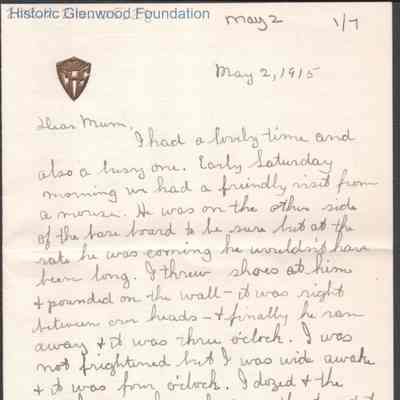 Historic Glenwood Foundation
May 2
1/7
May 2, 1915
Dear Mum,
I had a lovely time and
also a busy one. Early Saturday
morning we had a friendly visit from
a mouse. He was on the other side
of the base board to be sure but at the
rate he was coming he wouldn't have
been long. I threw shoes at him
& pounded on the wall - it was right
between our heads - & finally he ran
away & it was three o'clock. I was
not frightened but I was wide awake
& it was four o'clock. I dozed & the